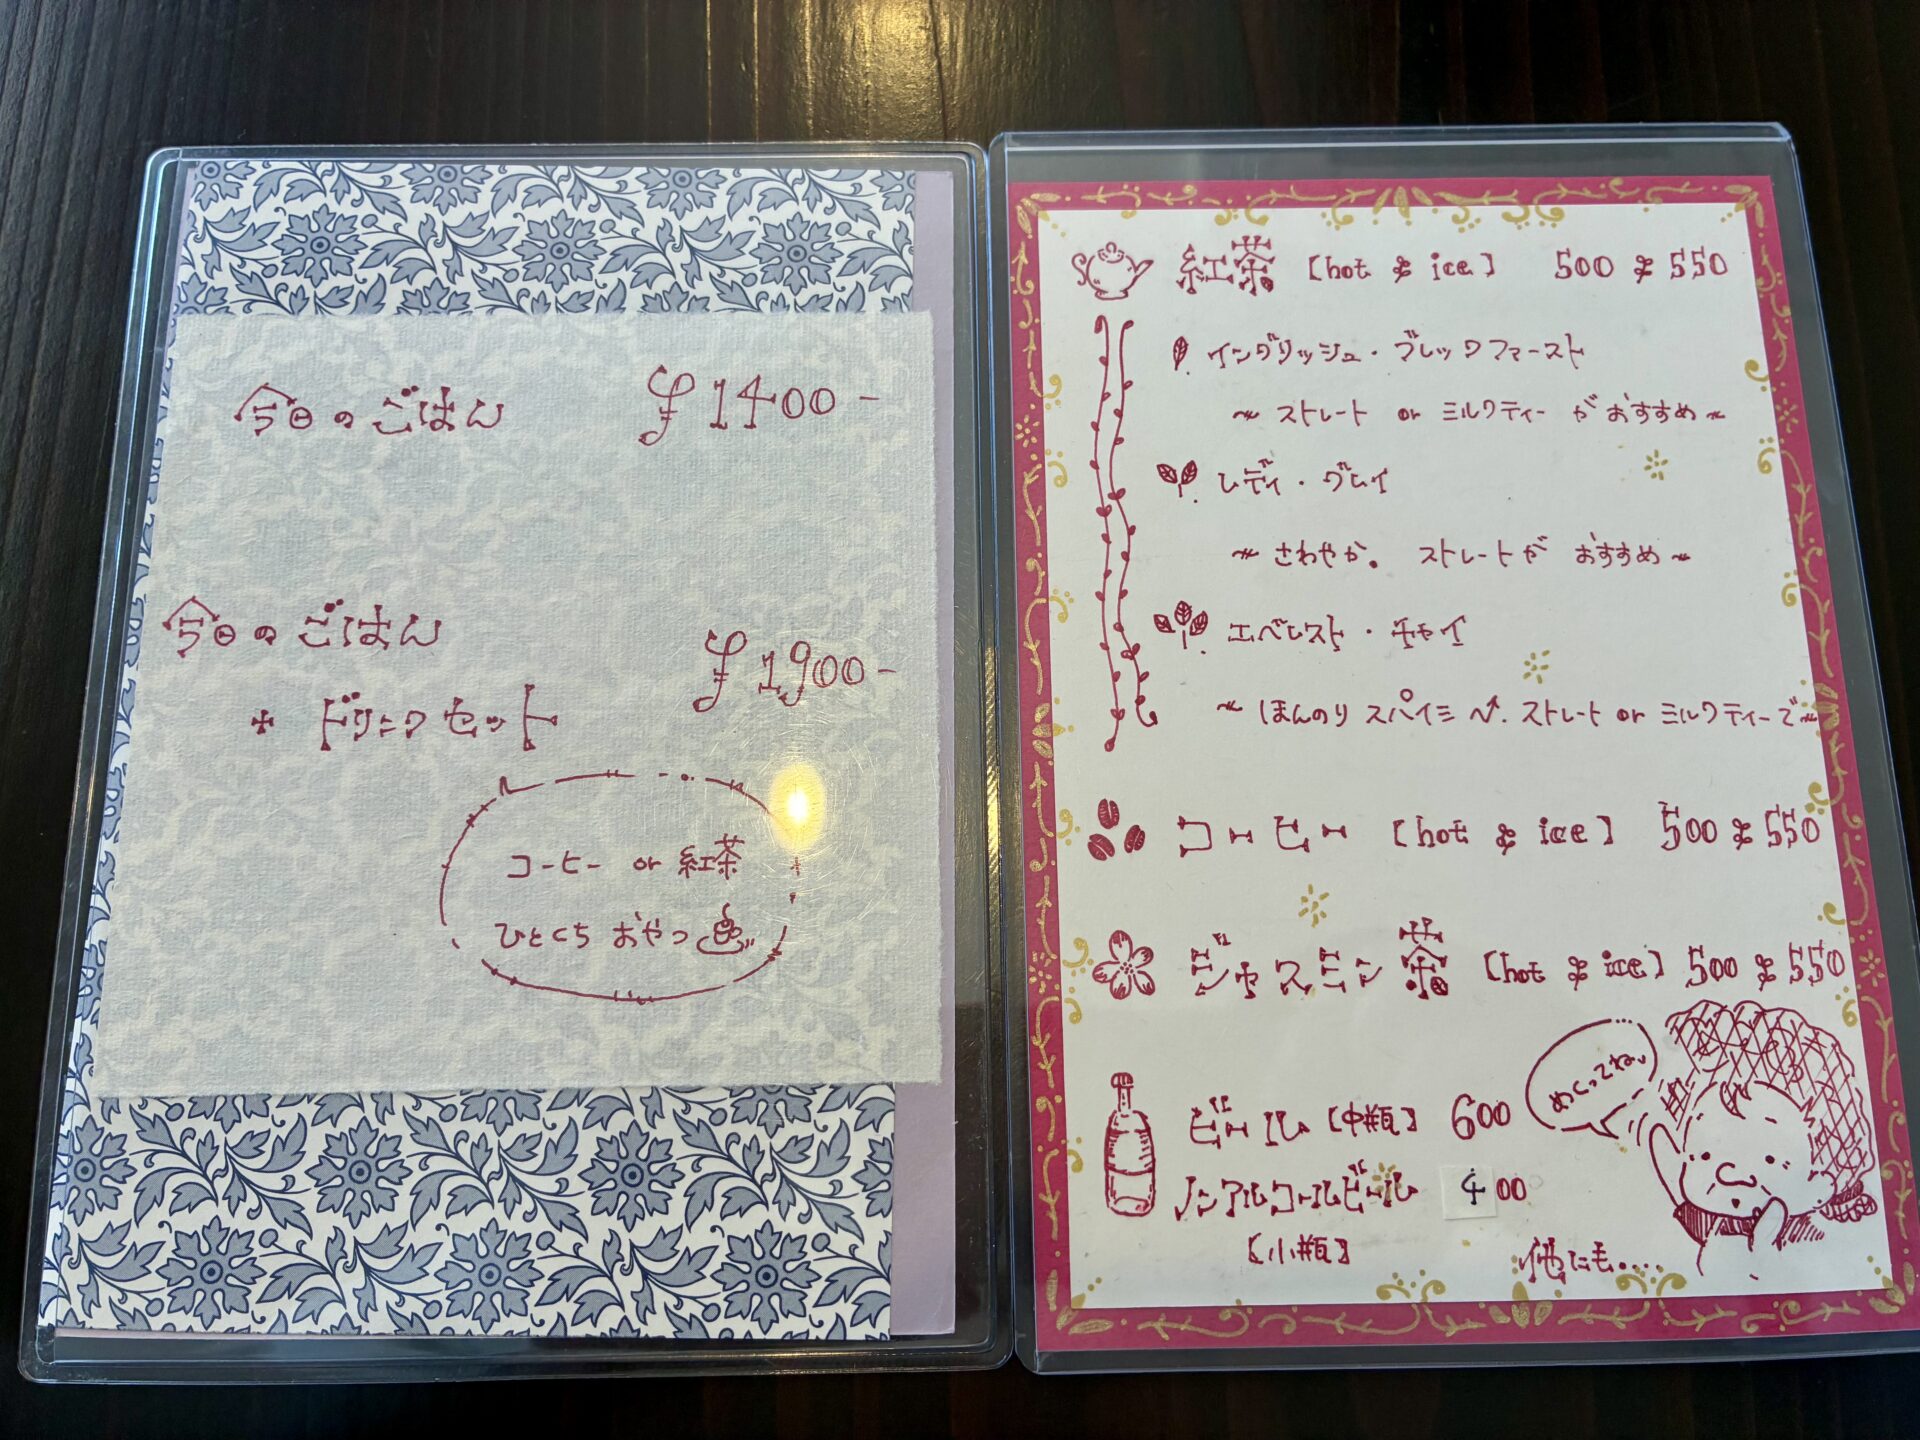 今日のごはん ¥1400-
今日のごはん
+ ドリンクセット ¥1900-
コーヒー or 紅茶
ひとくち おやつ
紅茶 [hot & ice] 500 & 550
イングリッシュ・ブレックファースト
～ ストレート or ミルクティー が おすすめ ～
レディ・グレイ
～ さわやか。 ストレートが おすすめ ～
エベレスト・チャイ
～ ほんのり スパイシー. ストレート or ミルクティーで～
コーヒー [hot & ice] 500 & 550
ジャスミン茶 [hot & ice] 500 & 550
ビール [中瓶] 600
ノンアルコールビール 400
[小瓶]
めくってね。
他にも....